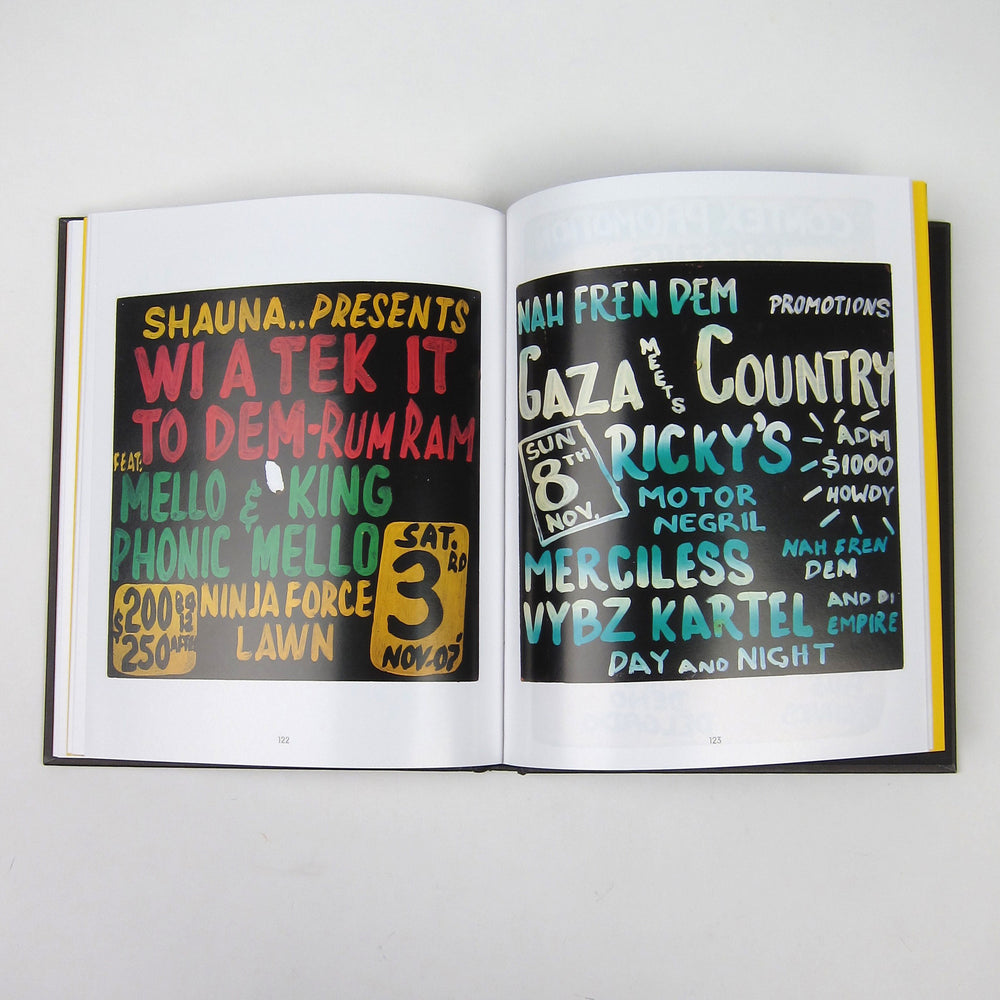 SHAUNA.. PRESENTS
WI A TEK IT
TO DEM-RUM RAM
FEAT:
MELLO & KING
PHONIC MELLO
SAT.
3RD
NOV-07
$200 B4 12
$250 AFTER
NINJA FORCE
LAWN
122
NAH FREN DEM PROMOTIONS
GAZA MEETS COUNTRY
SUN
8TH
NOV.
RICKY'S
MOTOR
NEGRIL
ADM
$1000
HOWDY
NAH FREN
DEM
MERCILESS
VYBZ KARTEL
AND DI
EMPIRE
DAY AND NIGHT
123
CONTEX PROMOTION